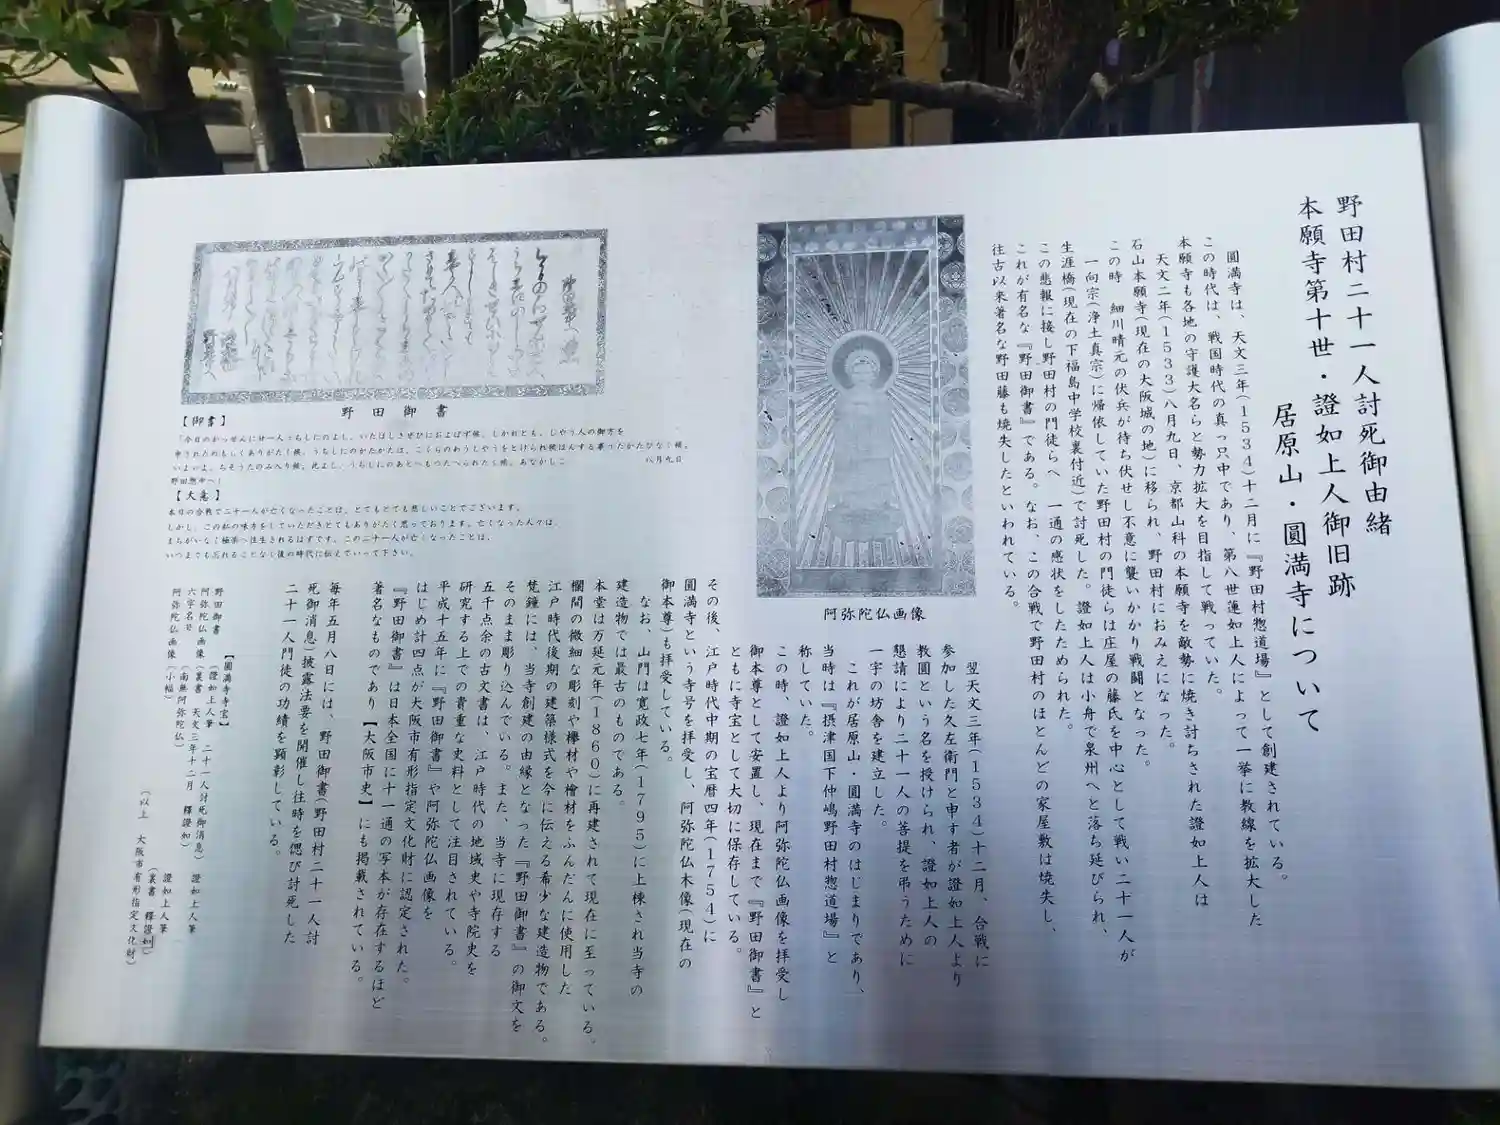 野田村二十一人討死御由緒
本願寺第十世・證如上人御旧跡
居原山・圓満寺について
圓満寺は、天文三年(1534)十二月に『野田村惣道場』として創建されている。
この時代は、戦国時代の真っ只中であり、第八世蓮如上人によって一挙に教線を拡大した
本願寺も各地の守護大名らと勢力拡大を目指して戦っていた。
天文二年(1533)八月九日、京都山科の本願寺を敵勢に焼き討ちされた證如上人は
石山本願寺(現在の大阪城の地)に移られ、野田村におみえになった。
この時 細川晴元の伏兵が待ち伏せし不意に襲いかかり戦闘となった。
一向宗(浄土真宗)に帰依していた野田村の門徒らは庄屋の藤氏を中心として戦い二十一人が
生涯橋(現在の下福島中学校裏付近)で討死した。證如上人は小舟で泉州へと落ち延びられ、
この悲報に接し野田村の門徒らへ 一通の感状をしたためられた。
これが有名な『野田御書』である。なお、この合戦で野田村のほとんどの家屋敷は焼失し、
往古以来著名な野田藤も焼失したといわれている。
阿弥陀仏画像
翌天文三年(1534)十二月、合戦に
参加した久左衛門と申す者が證如上人より
教圓という名を授けられ、證如上人の
懇請により二十一人の菩提を弔うために
一宇の坊舎を建立した。
これが居原山・圓満寺のはじまりであり、
当時は『摂津国下仲嶋野田村惣道場』と
称していた。
この時、證如上人より阿弥陀仏画像を拝受し
御本尊として安置し、現在まで『野田御書』と
ともに寺宝として大切に保存している。
その後、江戸時代中期の宝暦四年(1754)に
圓満寺という寺号を拝受し、阿弥陀仏木像(現在の
御本尊)も拝受している。
なお、山門は寛政七年(1795)に上棟され当寺の
建造物では最古のものである。
本堂は万延元年(1860)に再建されて現在に至っている。
欄間の微細な彫刻や欅材や檜材をふんだんに使用した
江戸時代後期の建築様式を今に伝える希少な建造物である。
梵鐘には、当寺創建の由縁となった『野田御書』の御文を
そのまま彫り込んでいる。また、当寺に現存する
五千点余の古文書は、江戸時代の地域史や寺院史を
研究する上での貴重な史料として注目されている。
平成十五年に『野田御書』や阿弥陀仏画像を
はじめ計四点が大阪市有形指定文化財に認定された。
『野田御書』は日本全国に十一通の写本が存在するほど
著名なものであり【大阪市史】にも掲載されている。
毎年五月八日には、野田御書(野田村二十一人討
死御消息)披露法要を開催し往時を偲び討死した
二十一人門徒の功績を顕彰している。
野田御書
【御書】
「今日のかっせんに廿一人うちしにのよし、いたはしきぜひにおよばず候、しかれども、しやう人の御方を
申されたのもしくありがたく候、うちしにのかたかたは、ごくらくのわうじやうをとげられ候はんする事うたがひなく候。
八月九日
野田惣中へ」
【大意】
本日の合戦で二十一人が亡くなったことは、とてもとても悲しいことでございます。
しかし、この私の味方をしていただきとてもありがたく思っております。亡くなった人々は、
まちがいなく極楽へ往生されるはずです。この二十一人が亡くなったことは、
いつまでも忘れることなく後の時代に伝えていって下さい。
【圓満寺寺宝】
野田御書 (證如上人筆 二十一人討死御消息) 證如上人筆
阿弥陀仏画像 (裏書 天文三年十二月 釋證如)
六字名号 (南無阿弥陀仏) 證如上人筆
阿弥陀仏画像 (小幅) (裏書 釋證如)
(以上 大阪市有形指定文化財)